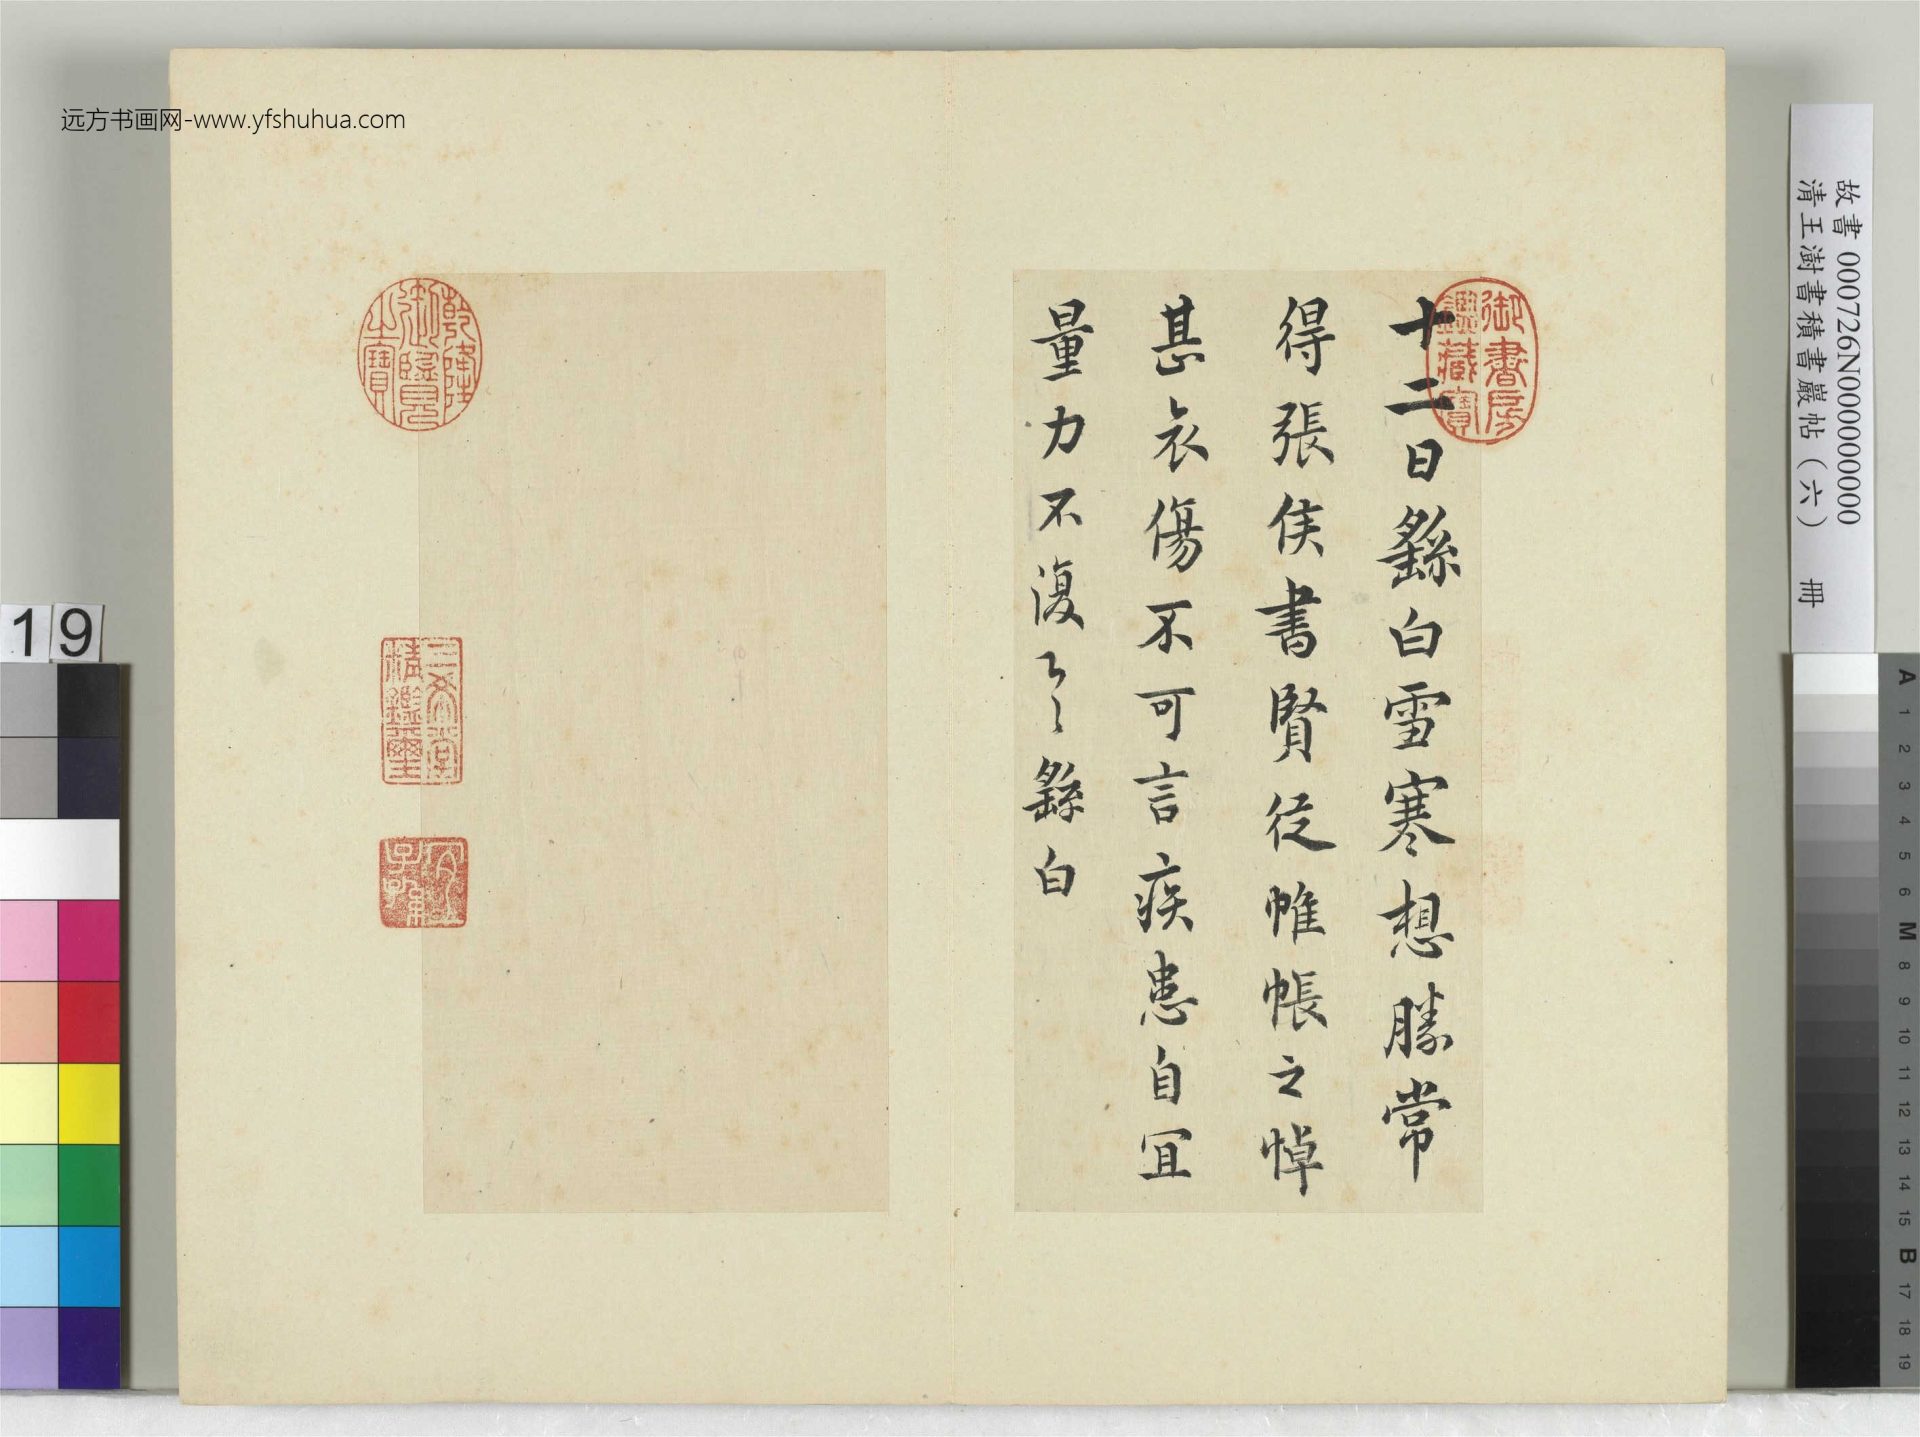 远方书画网-www.yfshuhua.com
故書 000726N000000000
清王澍書積書巖帖（六） 冊
御書房鑑藏寶
十二日繇白雪寒想勝常
得張侯書賢從帷帳之悼
甚衣傷不可言疾患自宜
量力不復繇白
乾隆御覽之寶
三希堂精鑑璽
宜子孫
19
A 1 2 3 4 5 6 M 8 9 10 11 12 13 14 15 B 17 18 19